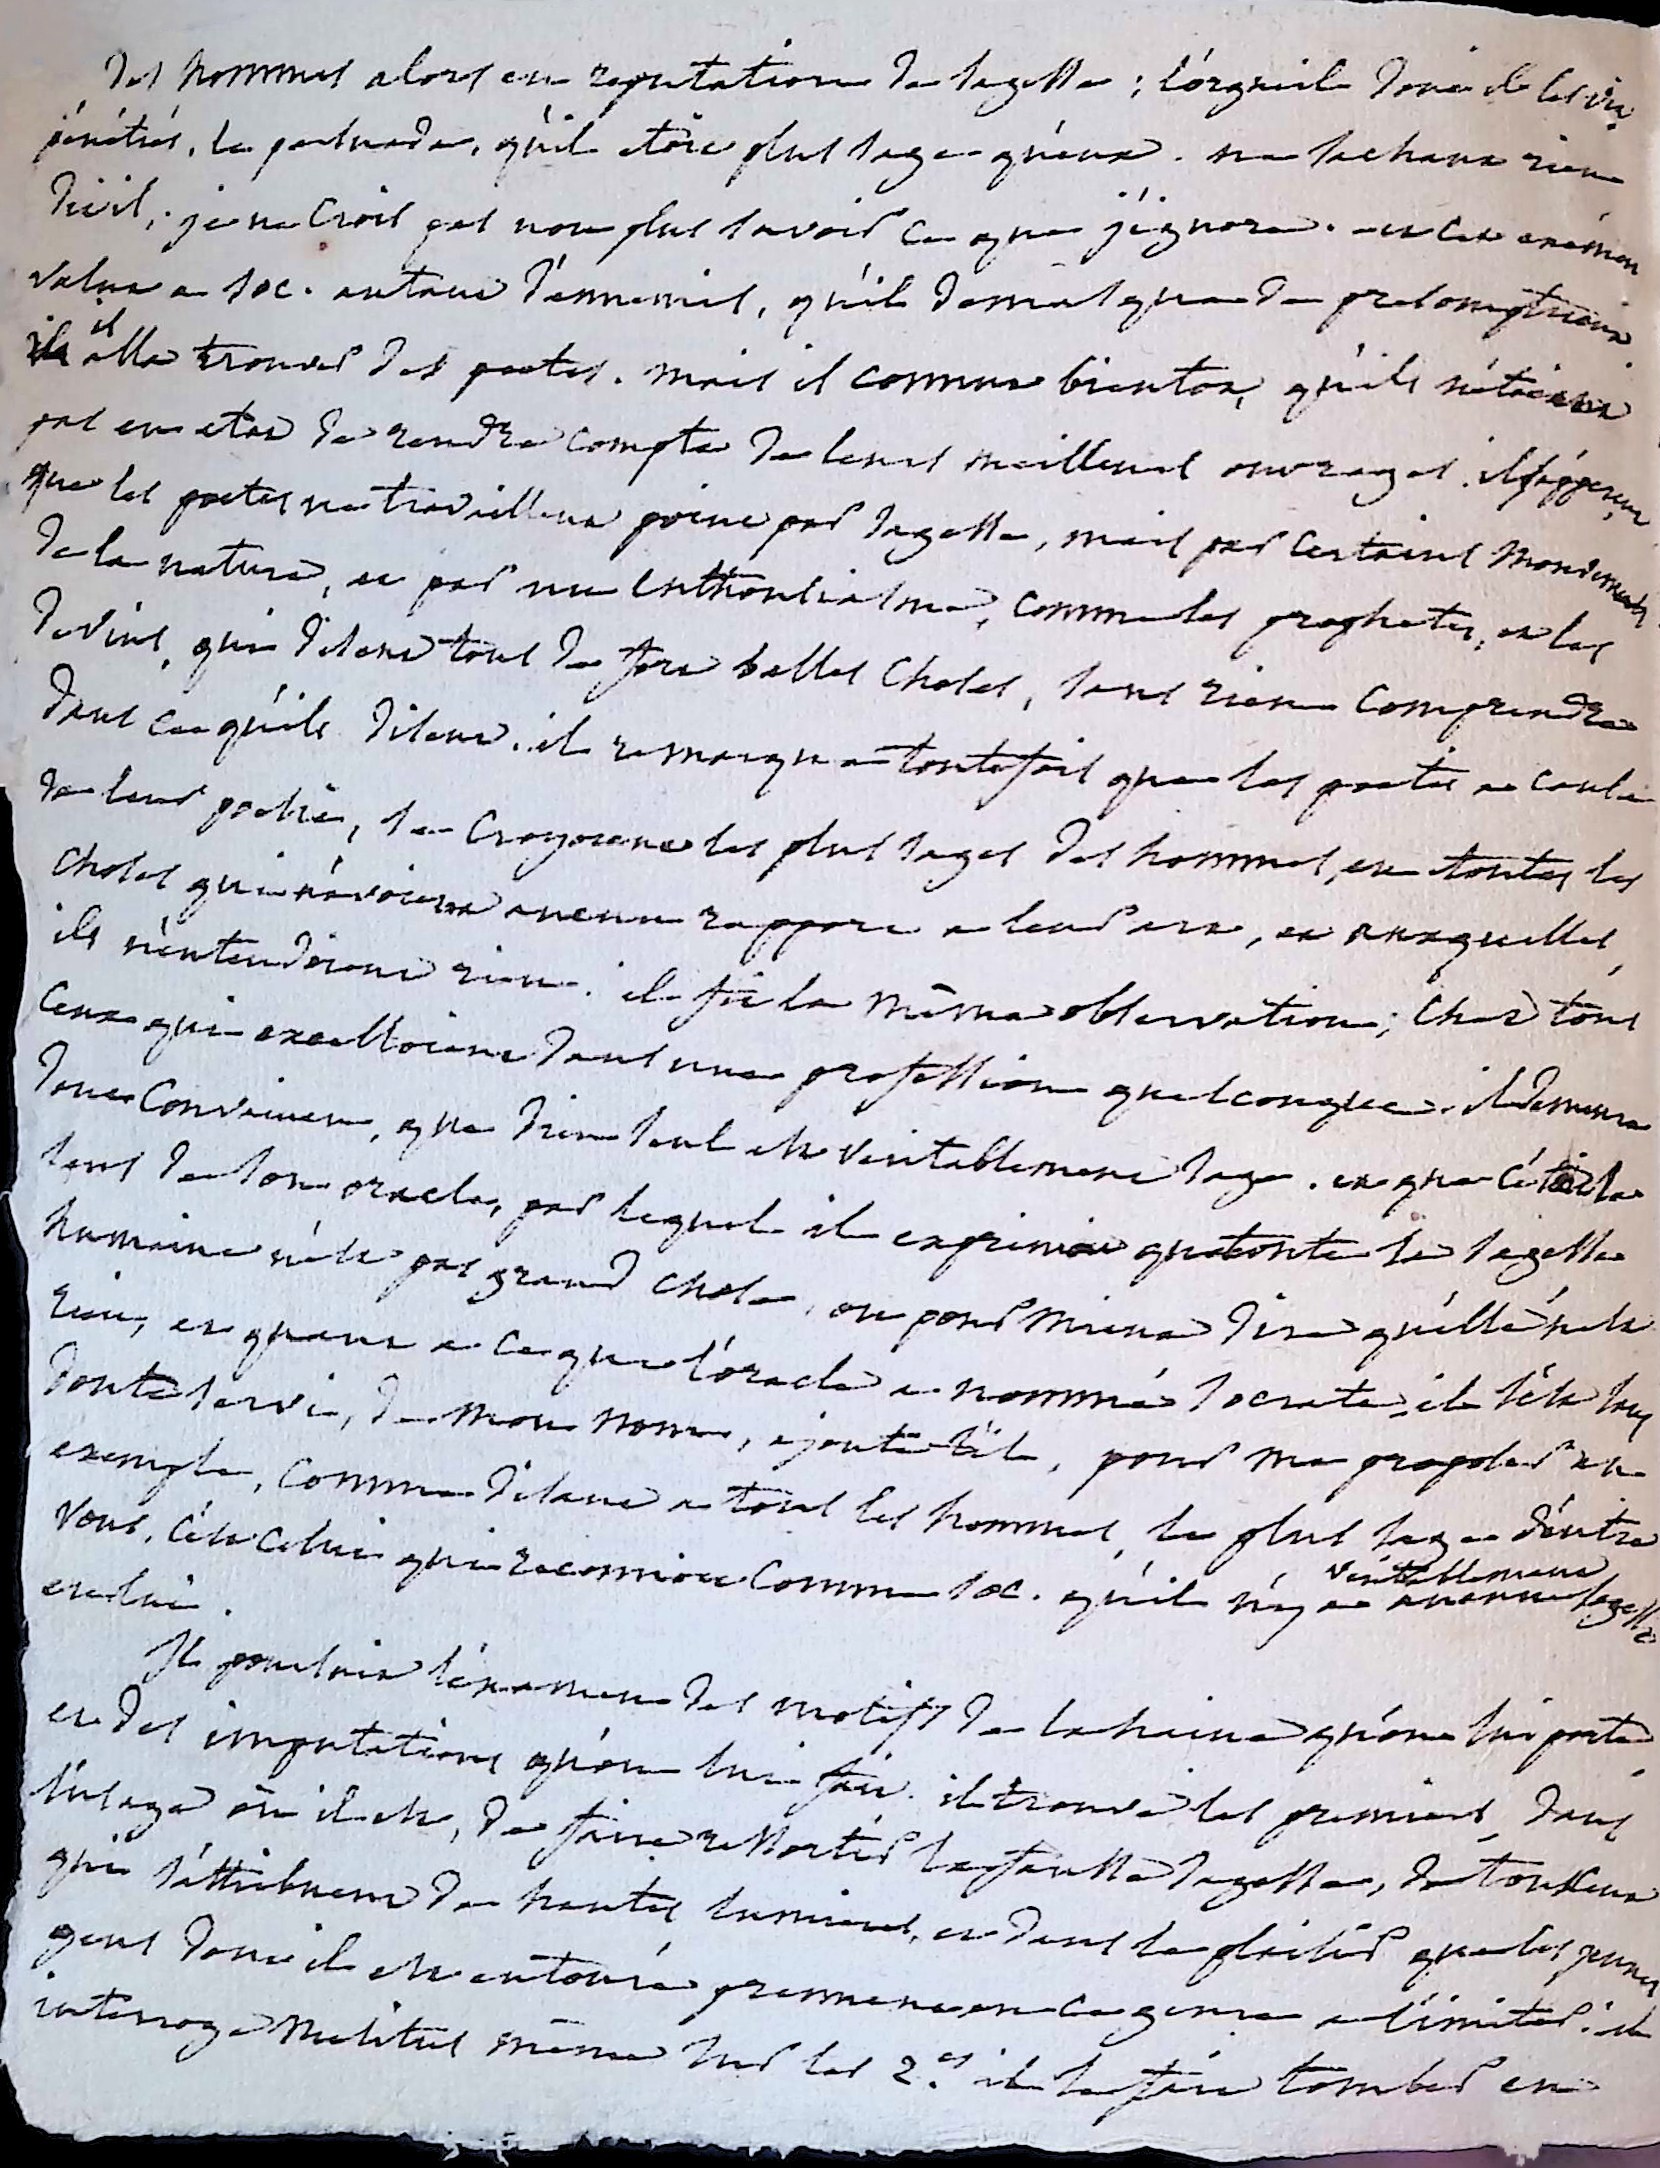 des hommes alors en reputation de sagesse ; l'orgueil dont il les vit
pénétrés, le persuada, qu'il etoit plus sage qu'eux. ne sachant rien
dit il, je ne crois pas non plus savoir ce que j'ignore. et cet exámen
valut a soc. autant d'ennemis, qu'il démasqua de présomptueux.
il alla trouver des poetes. mais il connut bientot, qu'ils n'étoient
pas en etat de rendre compte de leurs meilleurs ouvrages. il s'apperçut
que les poetes ne travaillent point par sagesse, mais par certains mouvements
de la nature, et par un enthousiasme, comme les prophetes, et les
devins, qui disent tous de fort belles choses, sans rien comprendre
dans ce qu'ils disent. il remarqua toutefois que les poetes a cause
de leur poesie, se croyoient les plus sages des hommes, en toutes les
choses qui n'avoient aucun rapport a leur art, et auxquelles,
ils n'entendoient rien. il fit la même observation, chez tous
ceux qui excelloient dans une profession quelconque. il demeura
donc convaincu, que dieu seul est veritablement sage. et que c'étoit le
sens de son oracle, par lequel il exprimoit que toute la sagesse
humaine n'est pas grand chose, ou pour mieux dire qu'elle n'est
rien, et quant a ce que l'oracle a nommé socrate, il s'est sans
doute servi, de mon nom, ajoute t'il, pour me proposer en
exemple, comme disant a tous les hommes, le plus sage d'entre
vous, c'est celui qui reconnoit comme soc. qu'il n'y a veritablement aucune sagesse
en lui.
Il poursuit l'examen des motifs de la haine qu'on lui porte,
et des imputations qu'on lui fait. il trouve les premiers, dans
l'usage où il est, de faire ressortir la fausse sagesse, de tous ceux
qui s'attribuent de hautes lumieres, et dans le plaisir que les jeunes
gens dont il est entouré prennent en ce genre a l'imiter. il
interroge melitus même sur les 2.es il le fait tomber en